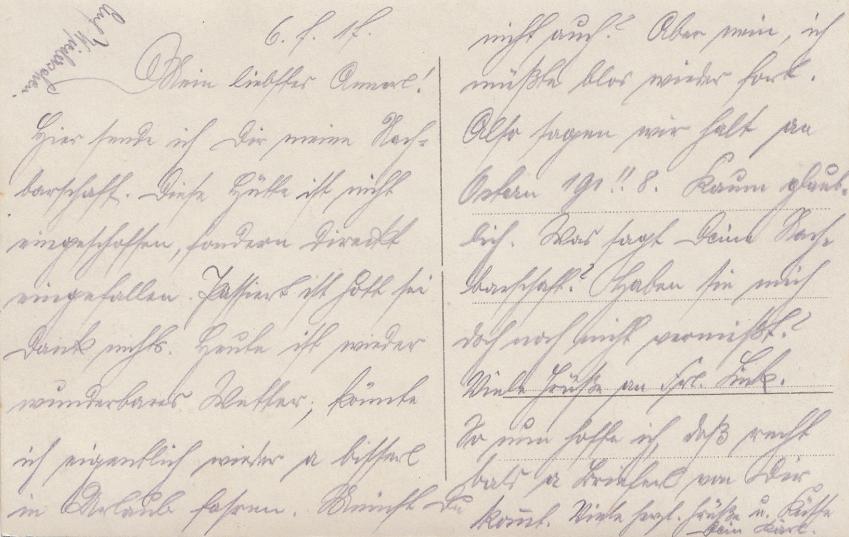 Auf Wiedersehen!
6. 5. 17.
Mein liebstes Annerl!
Hier sende ich Dir meine Nach-
barschaft. Diese Hütte ist nicht
eingeschossen, sondern direkt
eingefallen. Passiert ist Gott sei
Dank nichts. Heute ist wieder
wunderbares Wetter; könnte
ich eigentlich wieder a bisserl
in Urlaub fahren. Meinst Du
nicht auch? Aber nein, ich
müßte blos wieder fort.
Also sagen wir halt an
Ostern 191!!8. Kaum glaub-
lich. Was sagt Deine Nach-
barschaft? Haben sie mich
doch noch nicht vermißt?
Viele Grüße an Frl. Link.
So nun hoffe ich, daß recht
bald a Brieferl von Dir
kommt. Viele herzl. Grüße u. Küsse
Dein Karl.